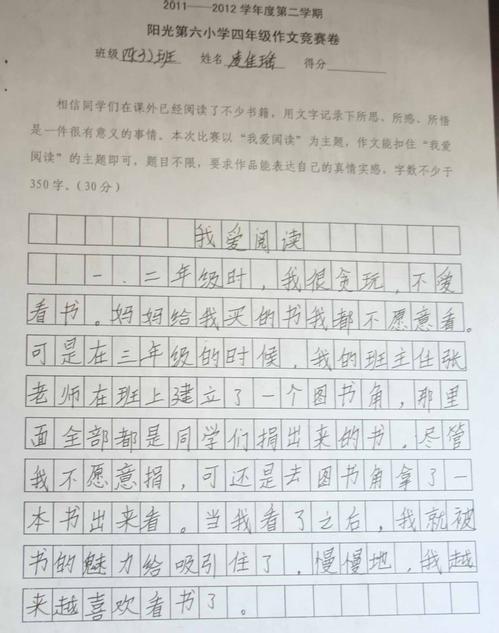 2011——2012学年度第二学期
阳光第六小学四年级作文竞赛卷
班级 四(3)班 姓名 凌佳瑶 得分
相信同学们在课外已经阅读了不少书籍，用文字记录下所思、所感、所悟
是一件很有意义的事情。本次比赛以“我爱阅读”为主题，作文能扣住“我爱
阅读”的主题即可，题目不限，要求作品能表达自己的真情实感，字数不少于
350字。(30分)
我爱阅读
一、二年级时，我很贪玩，不爱
看书。妈妈给我买的书我都不愿意看。
可是在三年级的时候，我的班主任张
老师在班上建立了一个图书角，那里
面全部都是同学们捐出来的书。尽管
我不愿意捐，可还是去图书角拿了一
本书出来看。当我看了之后，我就被
书的魅力给吸引住了，慢慢地，我越
来越喜欢看书了。